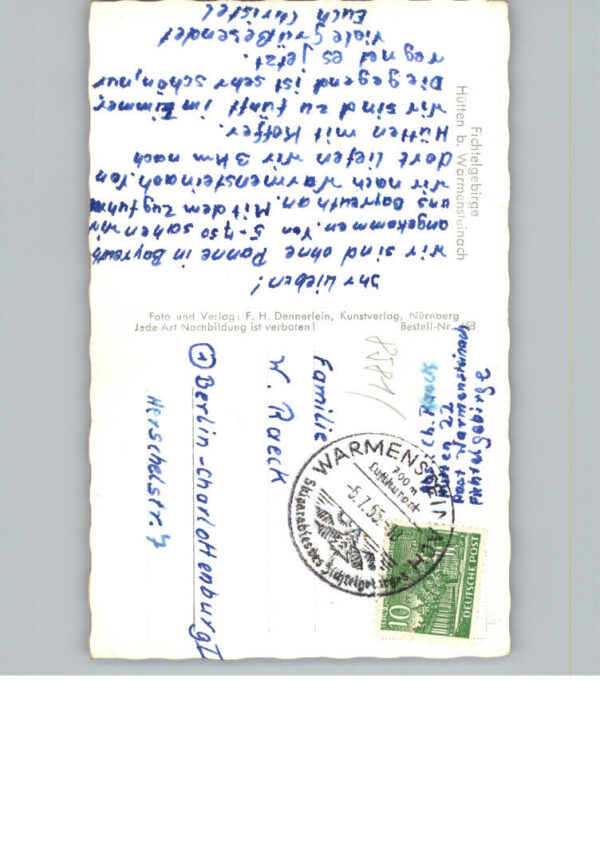 Fichtelgebirge
Hütten b. Warmensteinach
Ihr Lieben!
Wir sind ohne Panne in Bayreuth
angekommen. Von 5-7³⁰ sahen wir
uns Bayreuth an. Mit dem Zug fuhren
wir nach Warmensteinach. Von
dort liefen wir 3 km nach
Hütten mit Koffer.
Wir sind zu fünft im Zimmer.
Die Gegend ist sehr schön, nur
regnet es jetzt.
Viele Grüße sendet
Euch Christel
Foto und Verlag: F. H. Dennerlein, Kunstverlag, Nürnberg
Jede Art Nachbildung ist verboten! Bestell-Nr.
Hütten 22
Post Warmensteinach
Fichtelgebirge
Familie
W. Raeck
1 Berlin-Charlottenburg
Herschelstr. 7
WARMENSTEINACH
700 m
Luftkurort
-5.7.55.
Skiparadies des Fichtelgebirges
10
DEUTSCHE POST